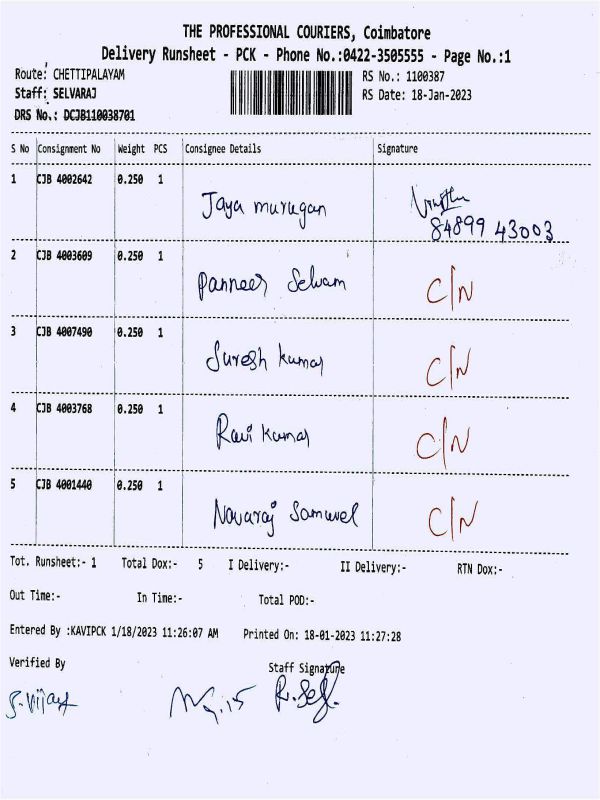 THE PROFESSIONAL COURIERS, Coimbatore
Delivery Runsheet - PCK - Phone No.:0422-3505555 - Page No.:1
Route: CHETTIPALAYAM RS No.: 1100387
Staff: SELVARAJ RS Date: 18-Jan-2023
DRS No.: DCJB110038701
S No Consignment No Weight PCS Consignee Details Signature
1 CJB 4002642 0.250 1 Jaya murugan
84899 43003
2 CJB 4003609 0.250 1 Panneer Selvam C/N
3 CJB 4007490 0.250 1 Suresh kumar C/N
4 CJB 4003768 0.250 1 Ravi kumar C/N
5 CJB 4001440 0.250 1 Navaraj Samuvel C/N
Tot. Runsheet:- 1 Total Dox:- 5 I Delivery:- II Delivery:- RTN Dox:-
Out Time:- In Time:- Total POD:-
Entered By :KAVIPCK 1/18/2023 11:26:07 AM Printed On: 18-01-2023 11:27:28
Verified By Staff Signature